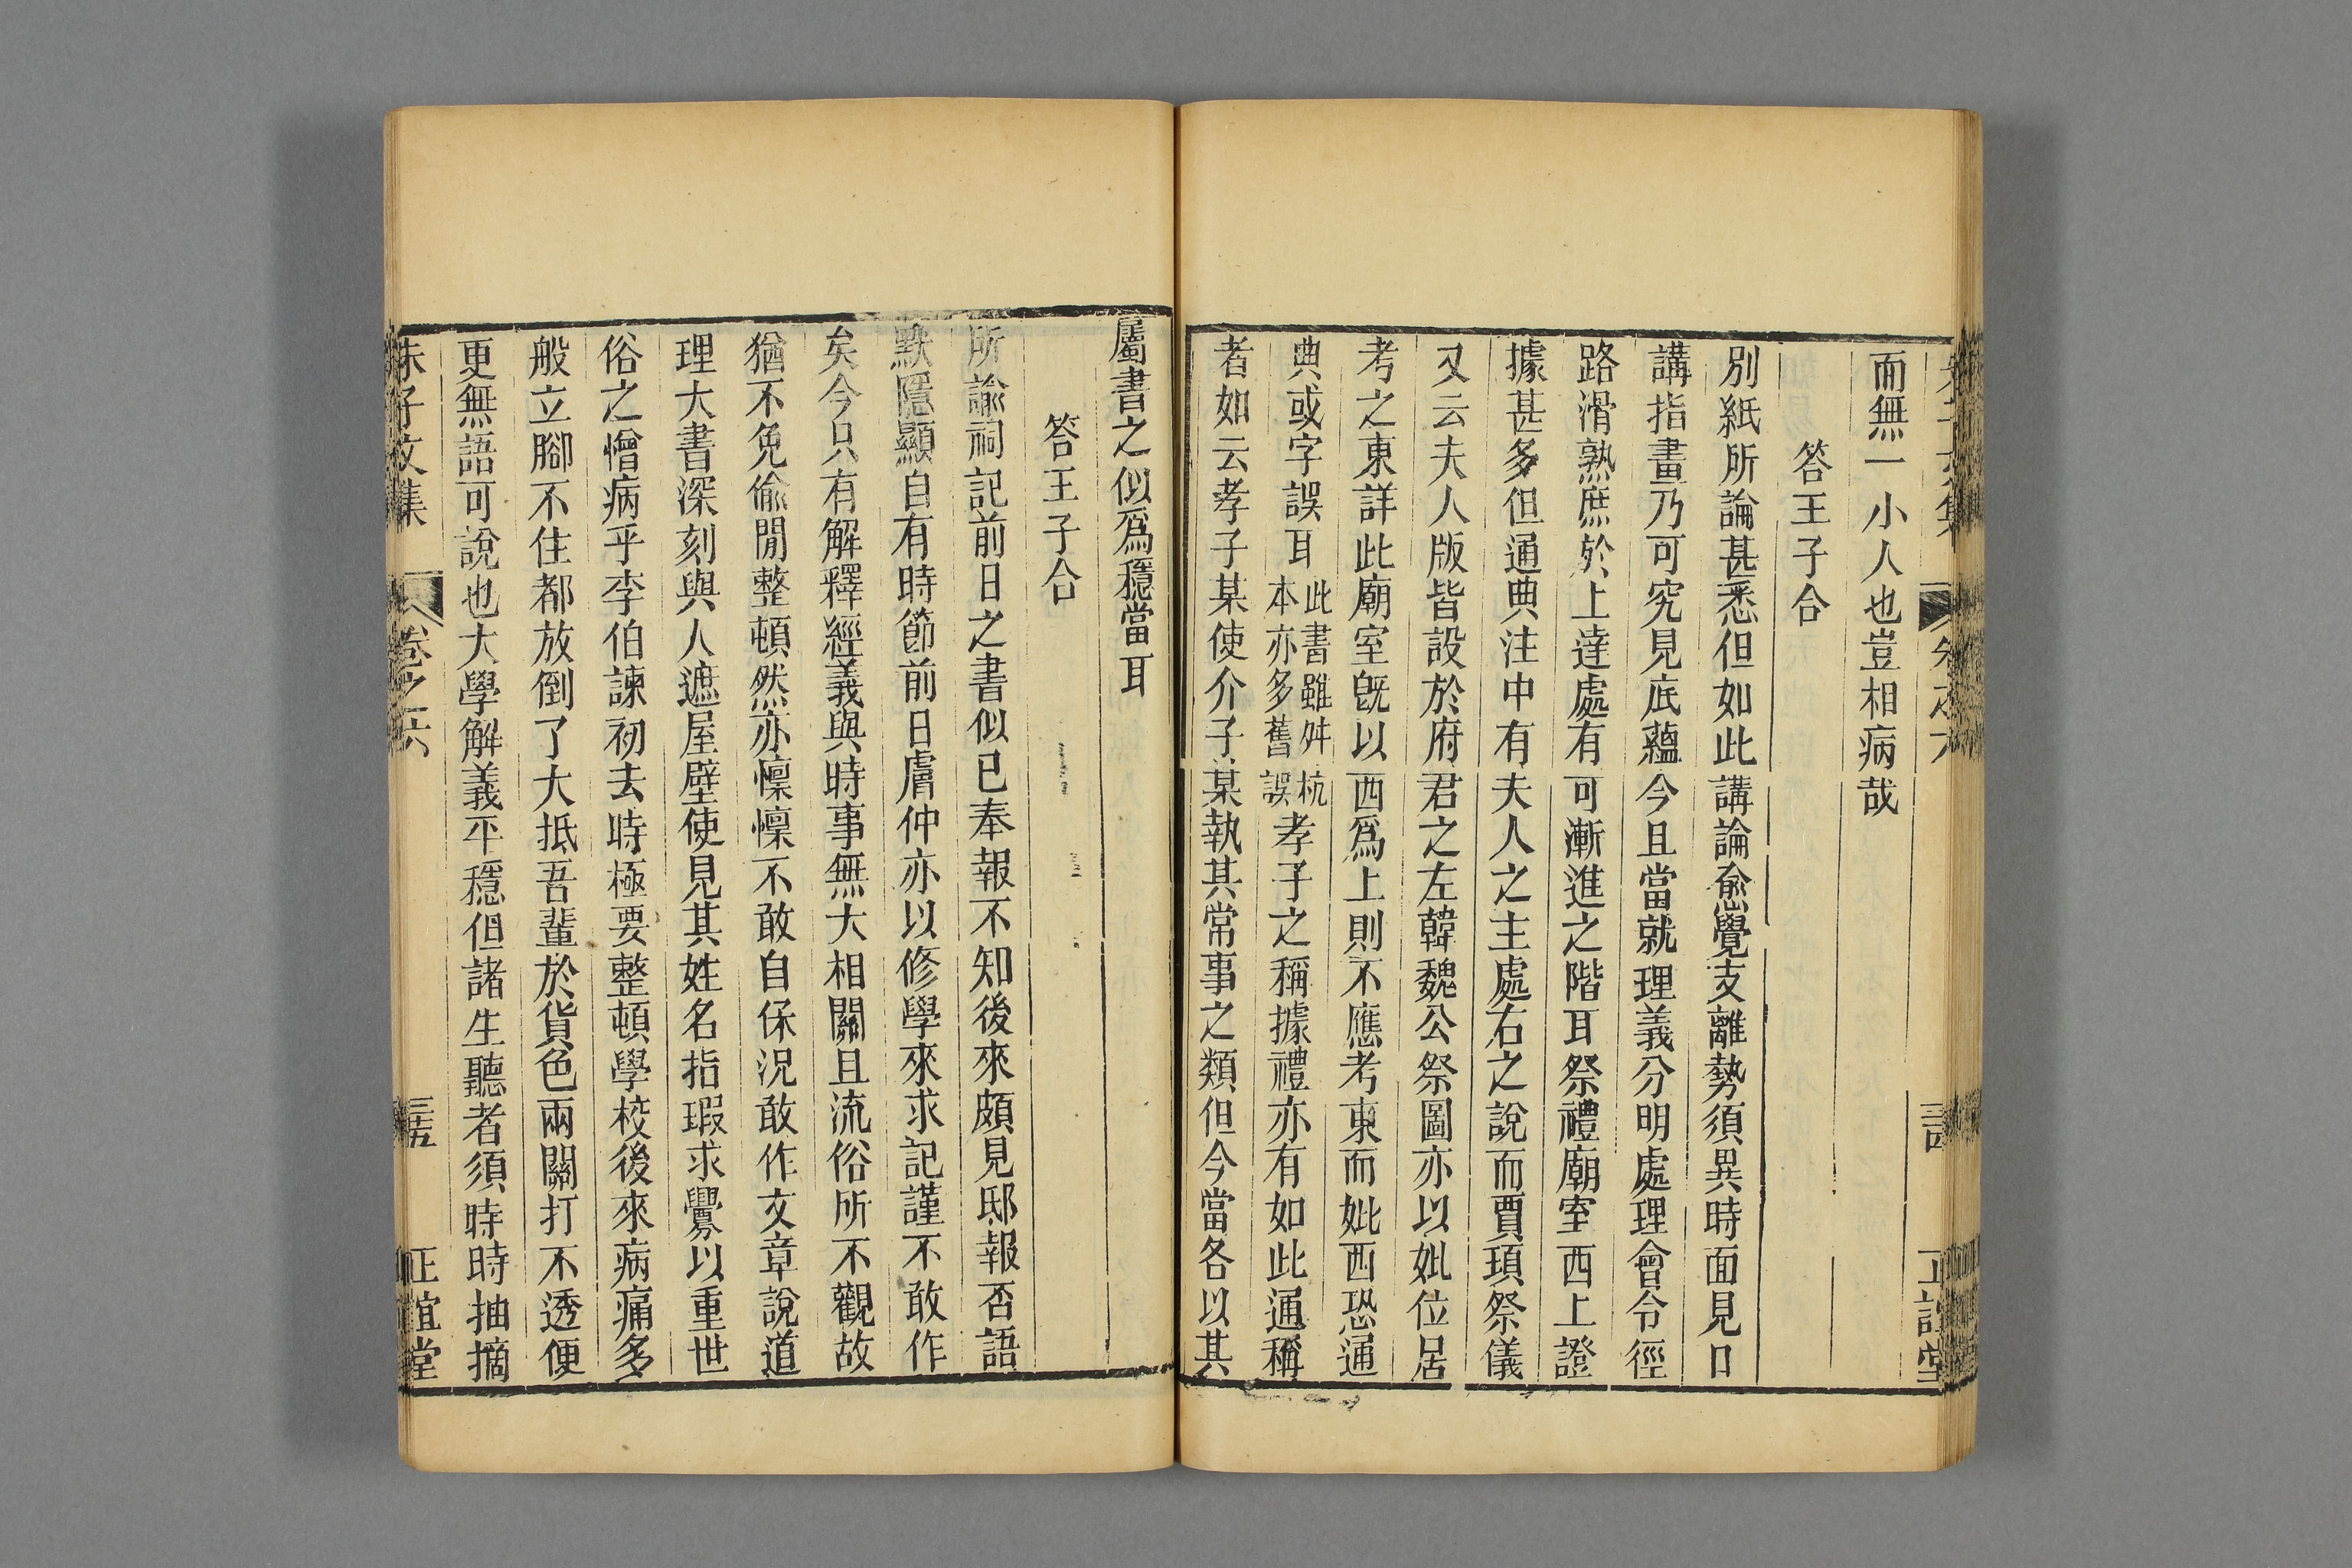 而無一小人也豈相病哉
答王子合
別紙所論甚悉但如此講論愈覺支離勢須異時面見口
講指畫乃可究見底蘊今且當就理義分明處理會令徑
路滑熟庶於上達處有可漸進之階耳祭禮廟室西上證
據甚多但通典注中有夫人之主處右之說而賈頊祭儀
又云夫人版皆設於府君之左韓魏公祭圖亦以妣位居
考之東詳此廟室旣以西爲上則不應考東而妣西恐通
典或字誤耳此書雖舛杭本亦多舊誤孝子之稱據禮亦有如此通稱
者如云孝子某使介子某執其常事之類但今當各以其
屬書之似爲穩當耳
答王子合
所諭祠記前日之書似已奉報不知後來頗見邸報否語
默隱顯自有時節前日膚仲亦以修學來求記謹不敢作
矣今只有解釋經義與時事無大相關且流俗所不觀故
猶不免偷閒整頓然亦懍懍不敢自保況敢作文章說道
理大書深刻與人遮屋壁使見其姓名指瑕求釁以重世
俗之憎病乎李伯諫初去時極要整頓學校後來病痛多
般立腳不住都放倒了大抵吾輩於貨色兩關打不透便
更無語可說也大學解義平穩但諸生聽者須時時抽摘
朱子文集 卷之六 三五 正誼堂